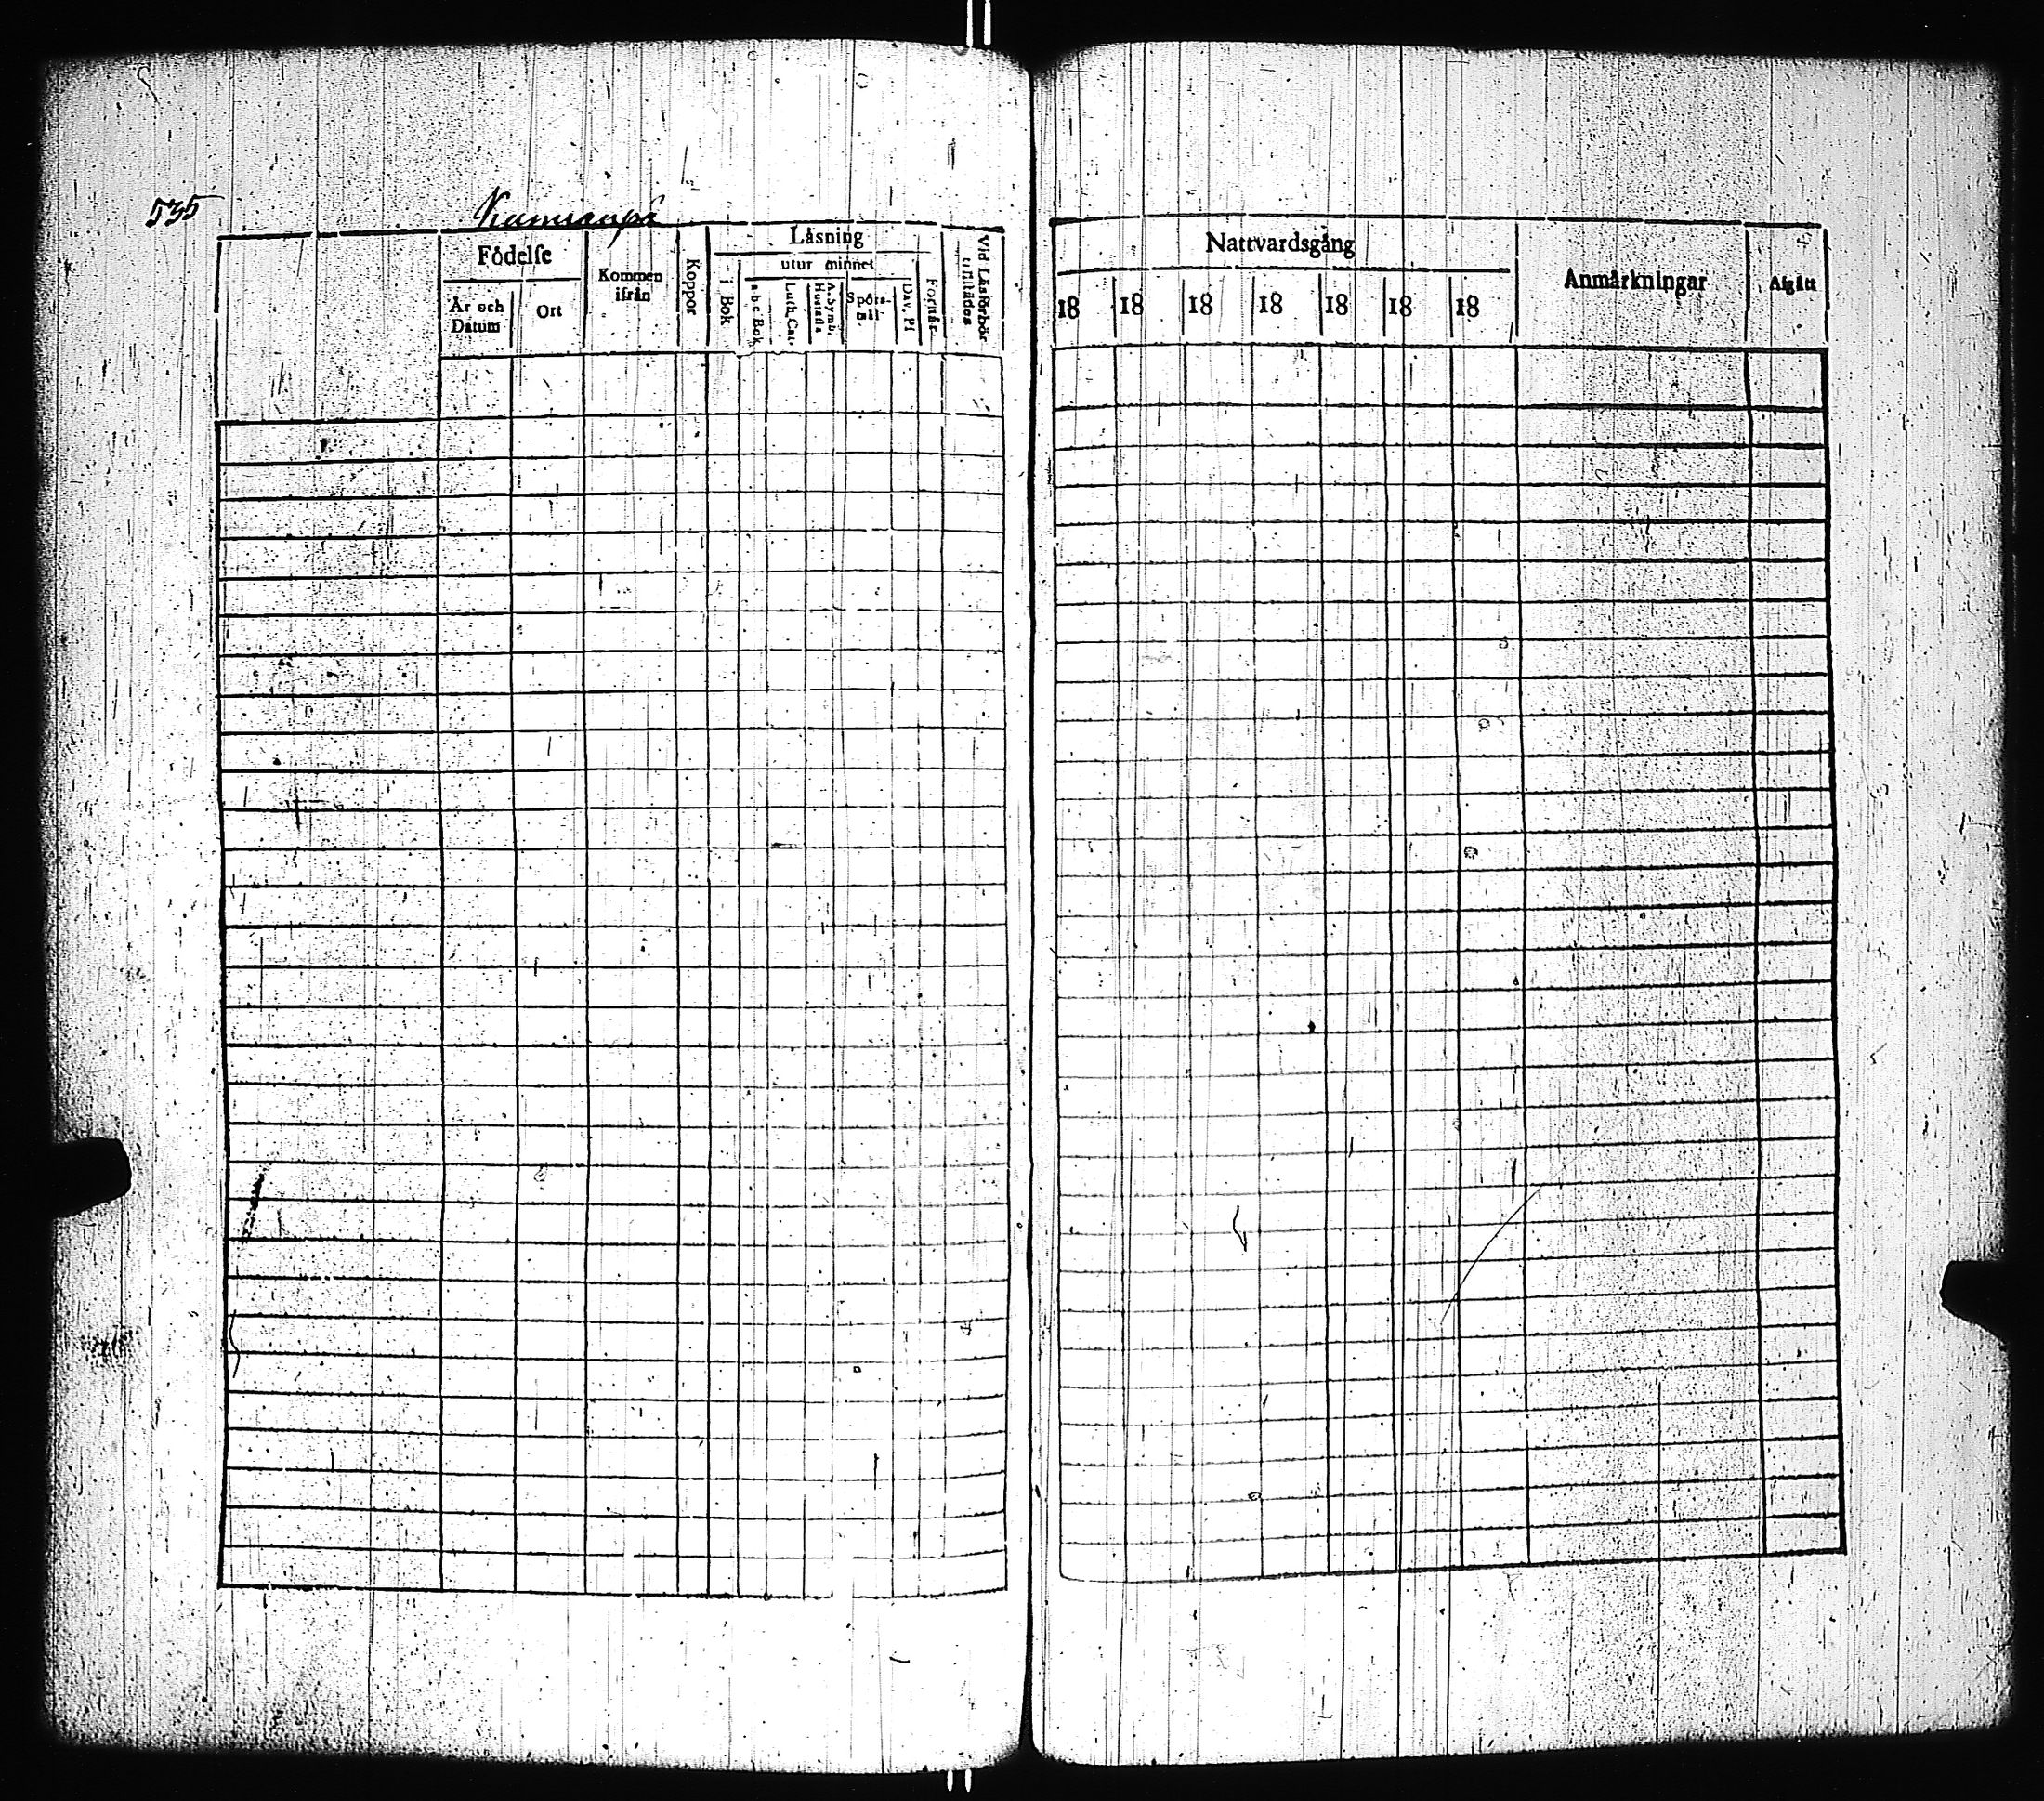 535
Födelse
År och Datum
Ort
Kommen ifrån
Koppor
Läsning
i Bok
utur minnet
a b c Bok
Luth. Cat.
A. Symb. Hustafla
Spörs-mål
Dav. Ps
Förstår
Vid Läsförhör tillstädes
Nattvardsgång
18 18 18 18 18 18 18
Anmärkningar
Afgått